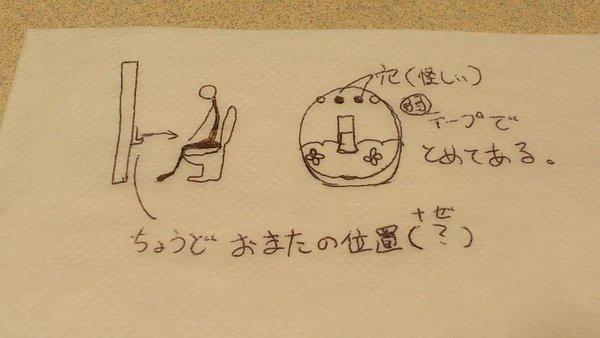 穴(怪しい)
テープで
とめてある。
ちょうど おまたの位置(なぜ?)